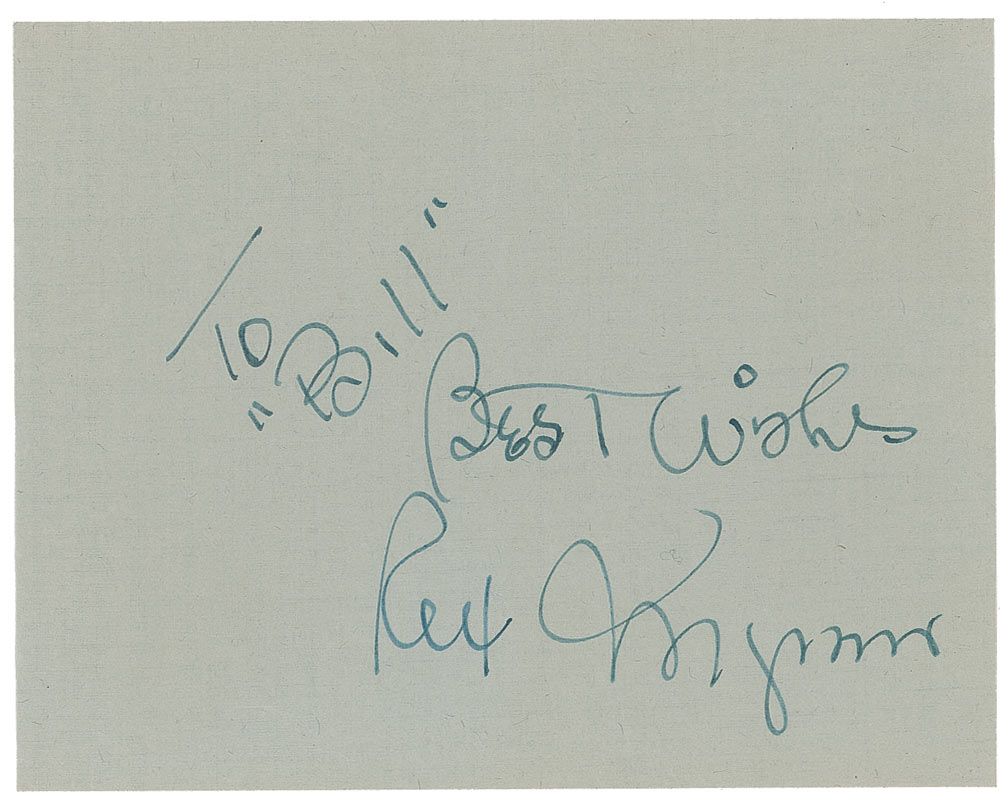 To
"Bill"
Best Wishes
Rex Ingram